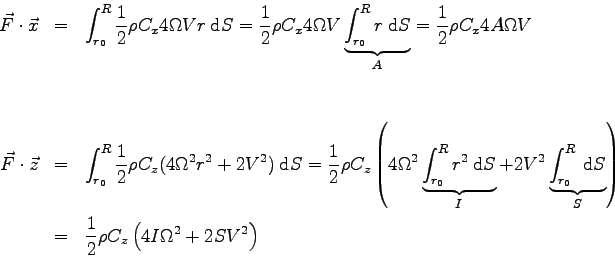 $\vec{F} \cdot \vec{x} = \int_{r_0}^{R} \frac{1}{2} \rho C_x 4 \Omega V r \; \mathrm{d}S = \frac{1}{2} \rho C_x 4 \Omega V \underbrace{\int_{r_0}^{R} r \; \mathrm{d}S}_{A} = \frac{1}{2} \rho C_x 4 A \Omega V$
$\vec{F} \cdot \vec{z} = \int_{r_0}^{R} \frac{1}{2} \rho C_z (4 \Omega^2 r^2 + 2 V^2) \; \mathrm{d}S = \frac{1}{2} \rho C_z \left( 4 \Omega^2 \underbrace{\int_{r_0}^{R} r^2 \; \mathrm{d}S}_{I} + 2 V^2 \underbrace{\int_{r_0}^{R} \mathrm{d}S}_{S} \right)$
$= \frac{1}{2} \rho C_z \left( 4 I \Omega^2 + 2 S V^2 \right)$